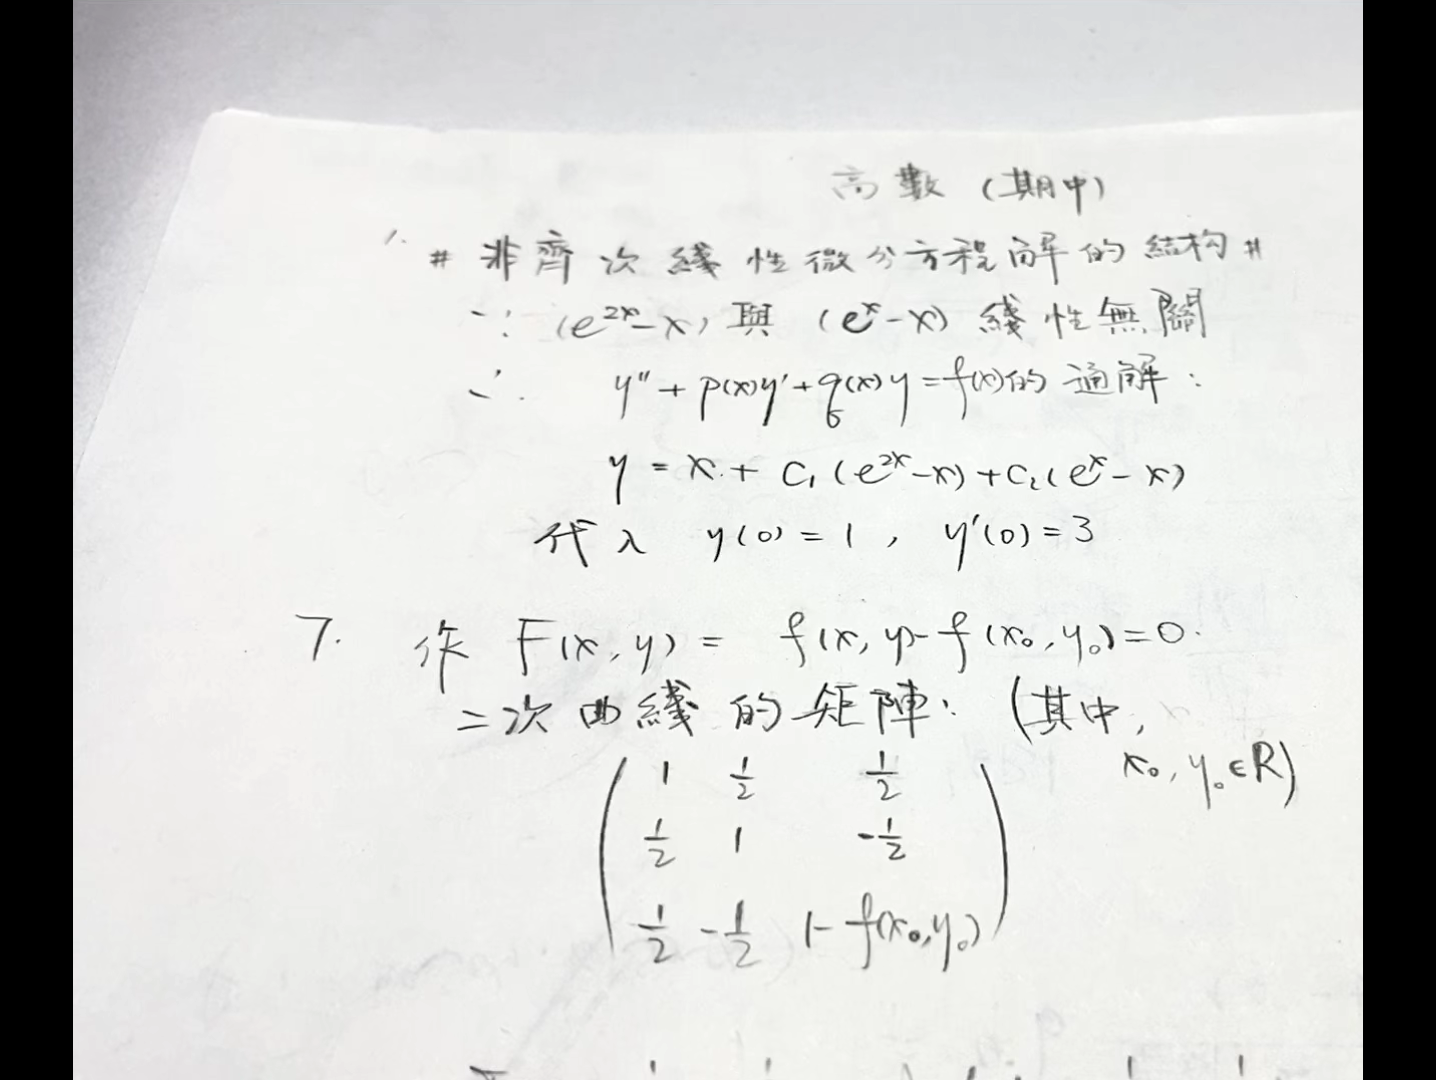 高數（期中）
1. # 非齊次綫性微分方程解的結构 #
∵ (e^{2x}-x) 與 (e^x-x) 綫性無關
∴ y''+p(x)y'+q(x)y=f(x)的通解：
y = x + C₁(e^{2x}-x)+C₂(e^x-x)
代入 y(0)=1, y'(0)=3
7. 作 F(x,y) = f(x,y)-f(x₀,y₀)=0.
二次曲綫的矩陣：(其中,
x₀,y₀∈R)
1 1/2 1/2
1/2 1 -1/2
1/2 -1/2 1-f(x₀,y₀)